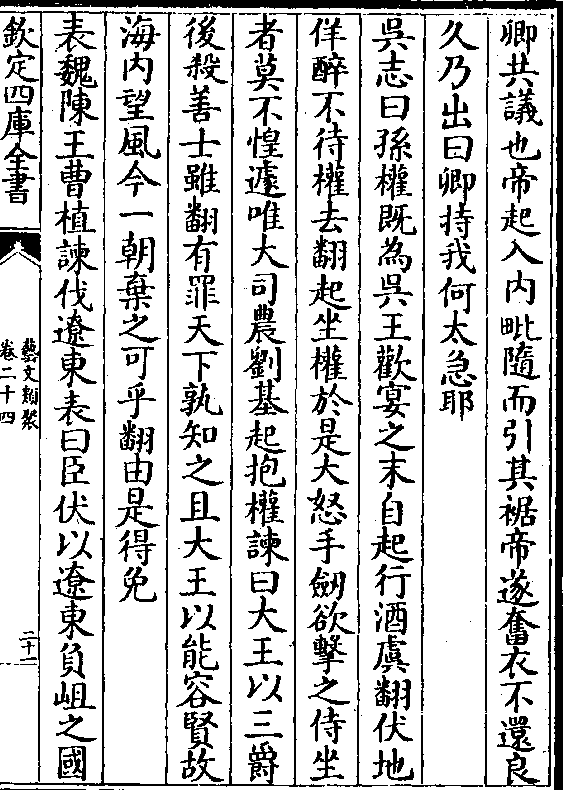 卿共議也帝起入内毗隨而引其裾帝遂奮衣不還良
久乃出曰卿持我何太急耶
吳志曰孫權既為吳王歡宴之末自起行酒虞翻伏地
佯醉不待權去翻起坐權於是大怒手劒欲擊之侍坐
者莫不惶遽唯大司農劉基起抱權諫曰大王以三爵
後殺善士雖翻有罪天下孰知之且大王以能容賢故
海内望風今一朝棄之可乎翻由是得免
表魏陳王曹植諫伐遼東表曰臣伏以遼東負岨之國
欽定四庫全書
藝文類聚
卷二十四
二十一